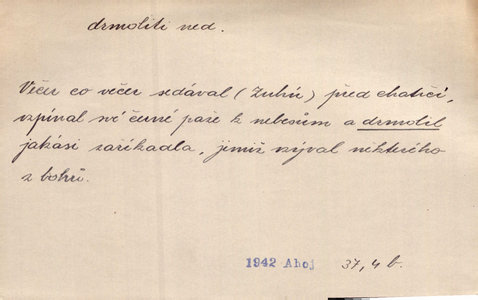 drmoliti ned.
Večer co večer sedával (Zuhú) před chatrčí,
vzpínal své černé paže k nebesům a drmolil
jakási zaříkadla, jimiž vzýval některého
z bohů.
1942 Ahoj 37,4 b.